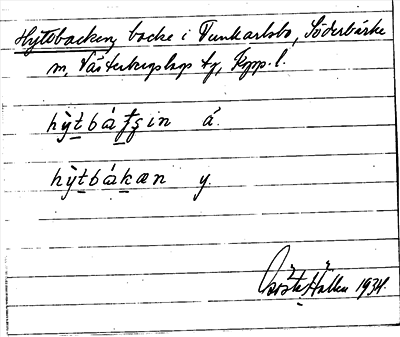 Hytsbacken, backe i Tunkarlsbo, Söderbärke
sn, Västerbergslags tg, Kopp. l.
hỳtbáʄʂin á.
hỳtbákæn y.
Gösta Hallén 1934.